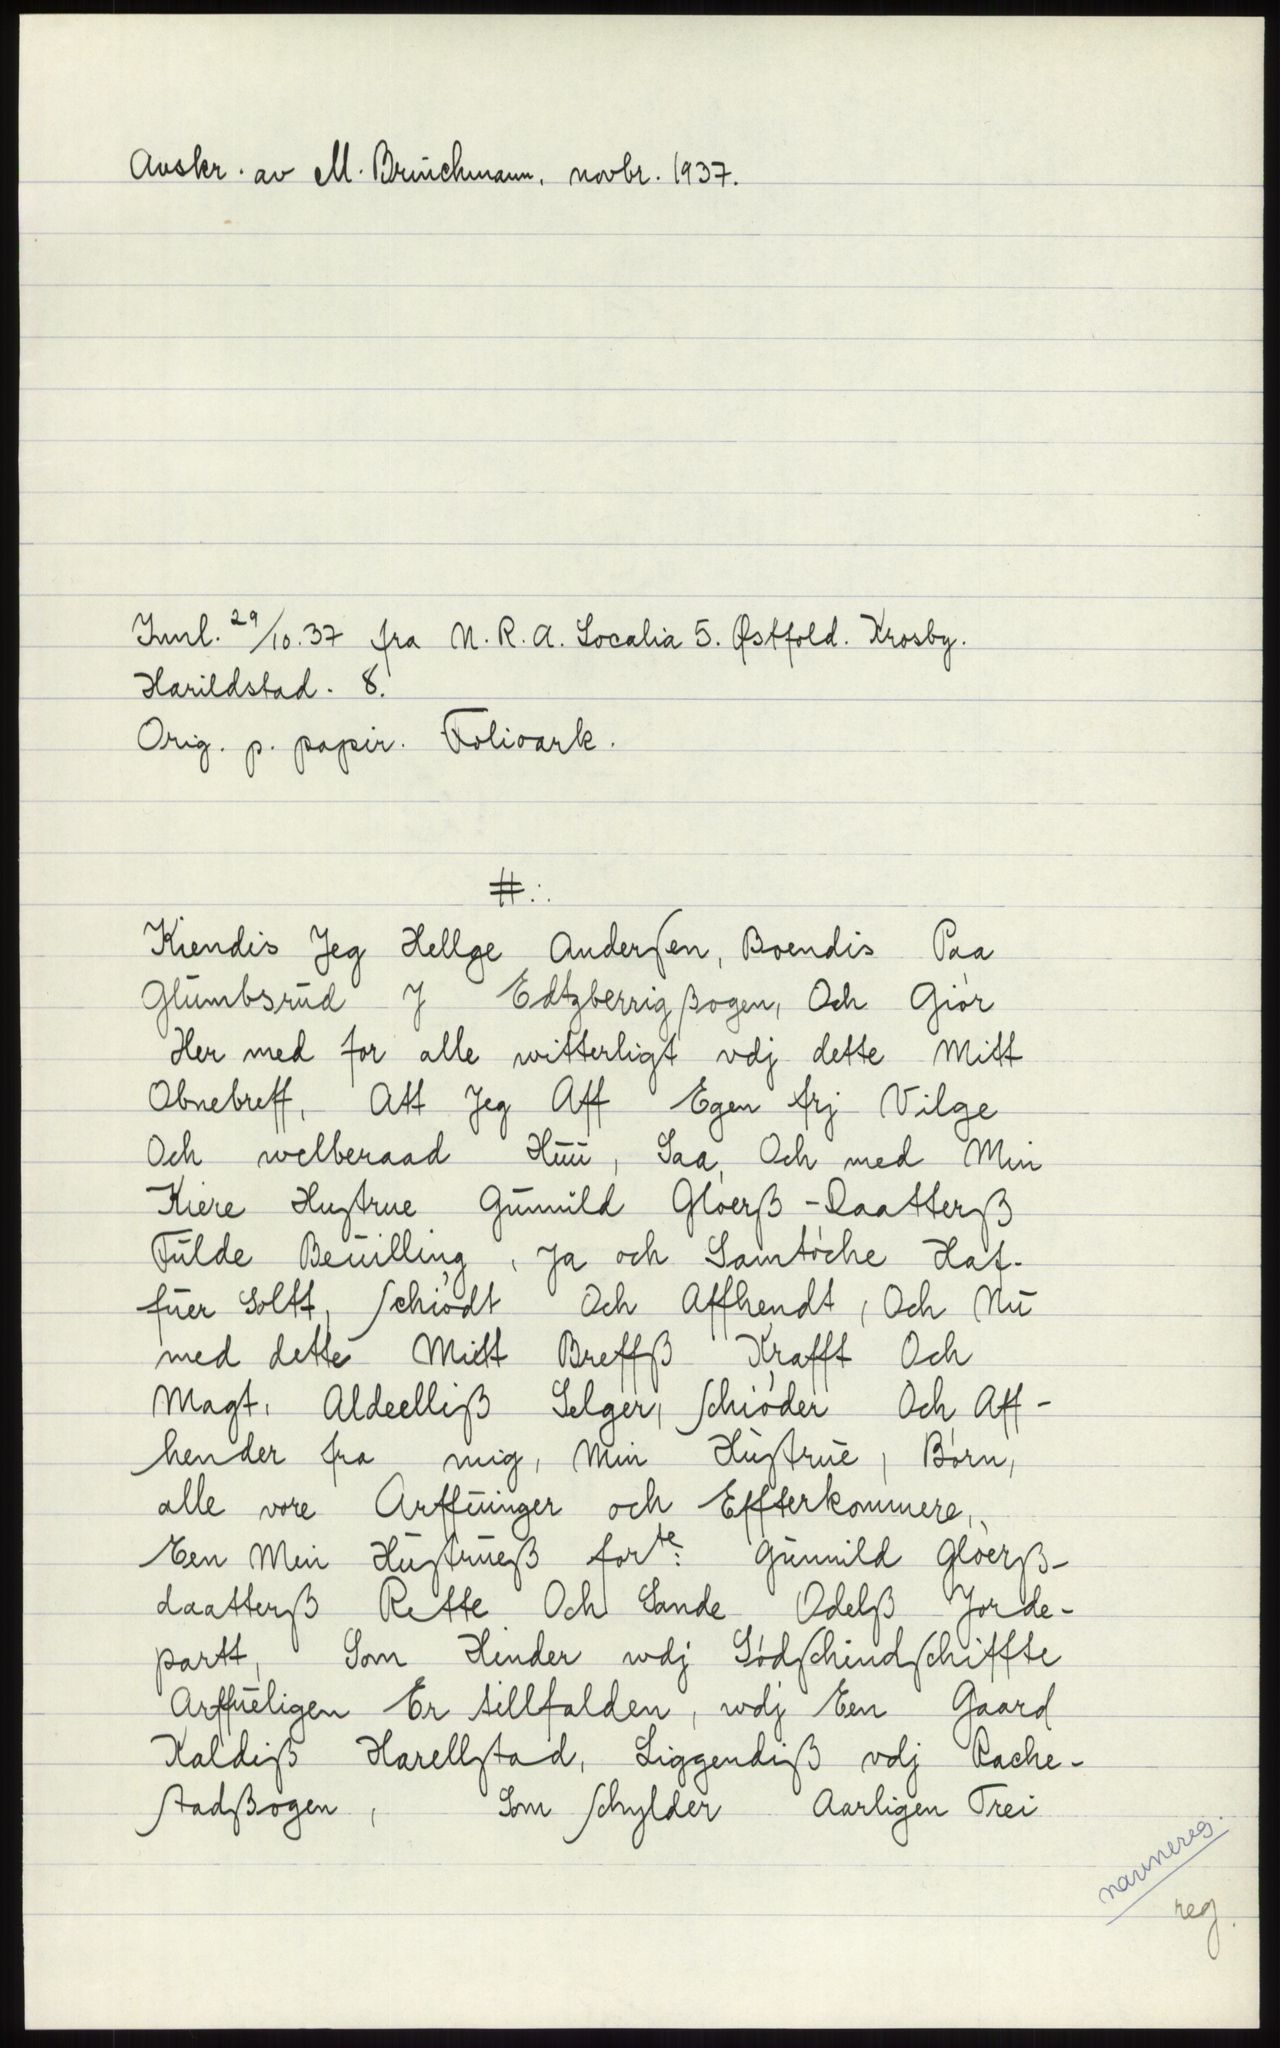 Avskr. av M. Brüchmann, novbr. 1937.
Innl. 29/10.37 fra N. R. A. Localia 5. Østfold. Krosby.
Harildstad. 8.
Orig. p. papir. Folioark.
#.:
Kiendis Jeg Hellge Anderſen, Boendis Paa
Glümbsrüd J Edtzberrig ßogen, Och Giör
Her med for alle witterligt vdj dette Mitt
Obnebreff, Att Jeg Aff Egen frj Vilge
Och welberaad Hüü, Saa, Och med Min
Kiere Hustrue Günnild Glöerß-Daatterß
Fülde Beüilling, Ja och Samtöche Haf-
füer Soltt, ſchiödt Och Affhendt, Och Nü
med dette Mitt Breffß Krafft Och
Magt, Aldeelliß Selger, ſchiöder Och Aff-
hender fra mig, Min Hüstrüe, Börn,
alle vore Arffüinger och Effterkommere,
Een Min Hüstrüeß forte: Günnild Glöerß-
daatterß Rette Och Sande Odelß Jorde-
partt, Som Hinder wdj Södſchindſchiffte
Arffüeligen Er tillfalden, wdj Een Gaard
Kaldiß Harellstad, Liggendiß vdj Rache-
stadßogen, Som ſchylder Aarligen Trei
navnereg.
reg.